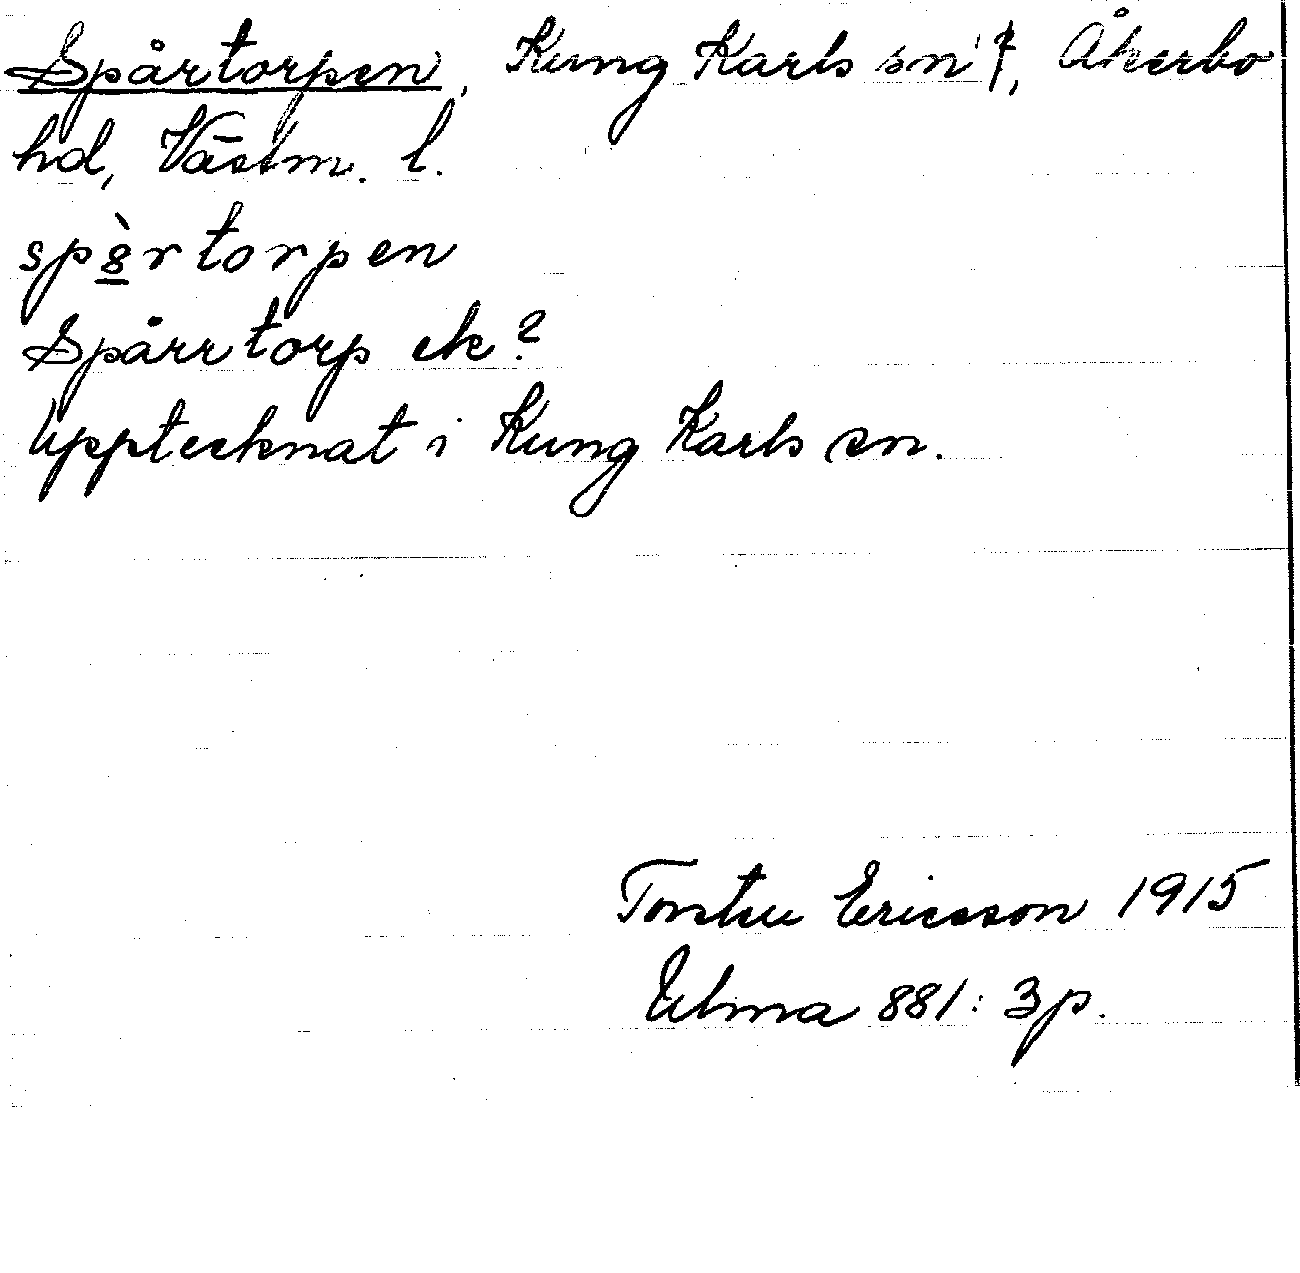 Spårtorpen, Kung Karls sn?, Åkerbo
hd, Västm. l.
sp8̀rtorpen
Spårrtorp ek?
Upptecknat i Kung Karls sn.
Torsten Ericsson 1915
Ulma 881: 3p.